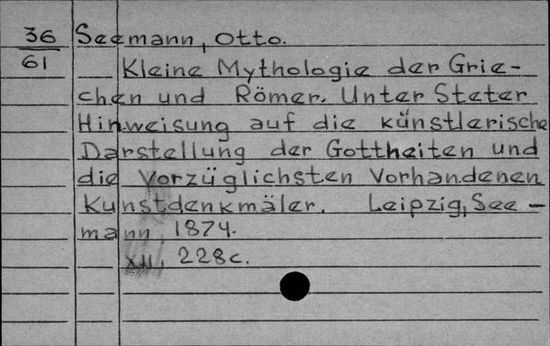 36 Seemann, Otto.
61 Kleine Mythologie der Grie-
chen und Römer. Unter Steter
Hinweisung auf die künstlerische
Darstellung der Gottheiten und
die Vorzüglichsten Vorhandenen
Kunstdenkmäler. Leipzig, See-
mann, 1874.
XII, 228c.